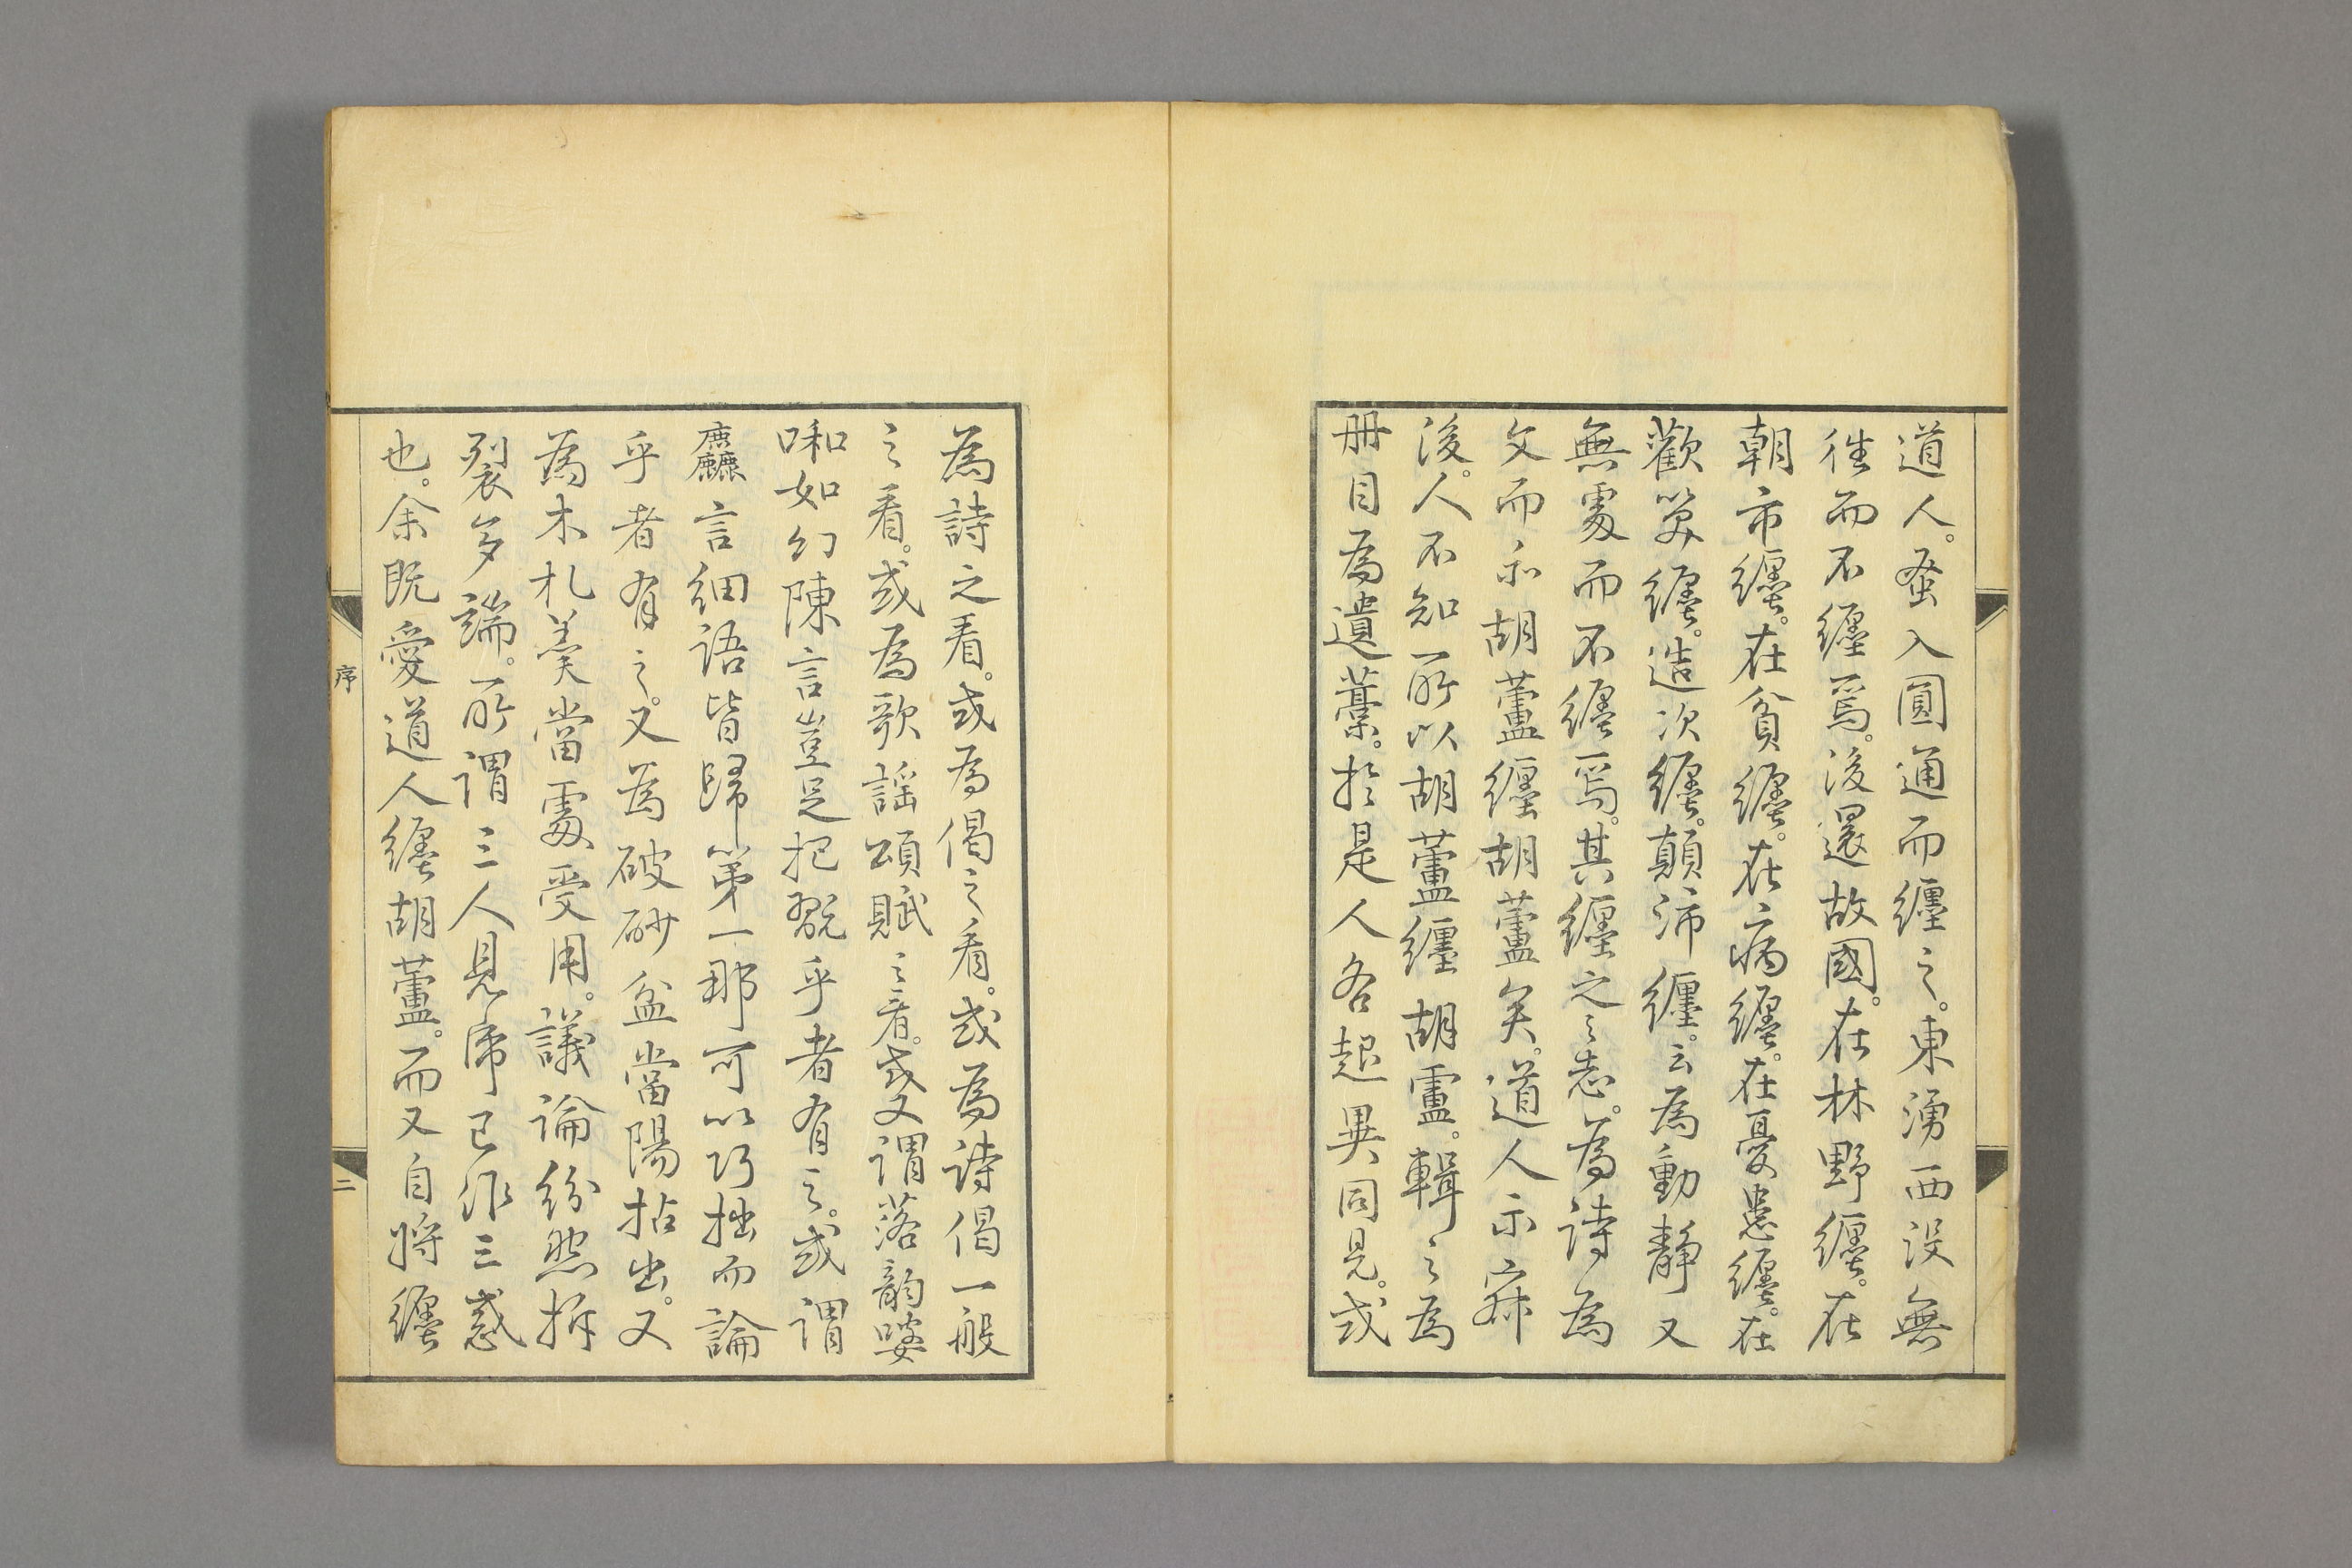 道人。蚤入圓通而纏之。東湧西没無
徃而不纏焉。後還故國。在林野纏。在
朝市纏。在貧纏。在病纏。在憂患纏。在
歡笑纏。造次纏。顛沛纏。云為動静又
無處而不纏焉。其纏之之志。為詩為
文而示胡蘆纏胡蘆矣。道人示寂
後。人不知所以胡蘆纏胡盧。輯之為
册目為遺藁。於是人各起異同見。或
為詩之看。或為偈之看。或為詩偈一般
之看。或為歌謡頌賦之看。或又謂落韵
啝如幻陳言豈足把翫乎者有之。或謂
麤言細語皆歸第一那可以巧拙而論
乎者有之。又為破砂盆當陽拈出。又
為木札羹當處受用。議論紛然拆
裂多端。所謂三人見虎已作三惑
也。余既愛道人纏胡蘆。而又自將纏
序
二